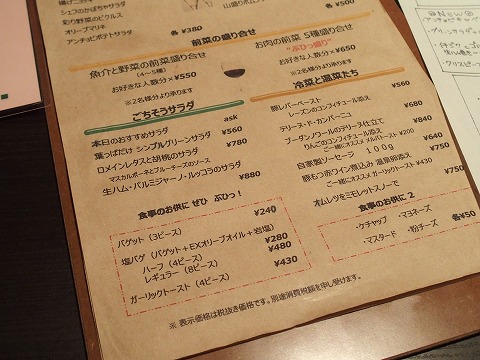 揚げニョッキ
シェフのかぼちゃサラダ
彩り野菜のピクルス
オリーブマリネ
アンチョビポテトサラダ
各¥380
山盛り
各¥500
前菜の盛り合せ
魚介と野菜の前菜盛り合せ
(4~5種)
お好きな人数分×¥550
※2名様分より承ります
お肉の前菜 5種盛り合せ
"ぷひっ盛り"
お好きな人数分×¥650
※2名様分より承ります
ごちそうサラダ
本日のおすすめサラダ ask
葉っぱだけ シンプルグリーンサラダ ¥560
ロメインレタスと胡桃のサラダ ¥780
マスカルポーネとブルーチーズのソース
生ハム・パルミジャーノ・ルッコラのサラダ ¥880
冷菜と温菜たち
豚レバーペースト ¥560
レーズンのコンフィチュール添え
テリーヌ・ド・カンパーニュ ¥680
ブーダンノワールのテリーヌ仕立て ¥840
りんごのコンフィチュール添え
ご一緒にオススメ メルバトースト ¥200
自家製ソーセージ 100g ¥640
豚もつ赤ワイン煮込み 温泉卵添え ¥750
ご一緒にオススメ ガーリックトースト ¥430
オムレツをミモレットスノーで ¥750
食事のお供に ぜひ ぷひっ!
バゲット (3ピース) ¥240
塩バゲ (バゲット+EXオリーブオイル+岩塩)
ハーフ (4ピース) ¥280
レギュラー (8ピース) ¥480
ガーリックトースト (4ピース) ¥430
食事のお供に 2
各¥50
・ケチャップ ・マヨネーズ
・マスタード ・粉チーズ
※ 表示価格は税抜き価格です。別途消費税額を申し受けます。